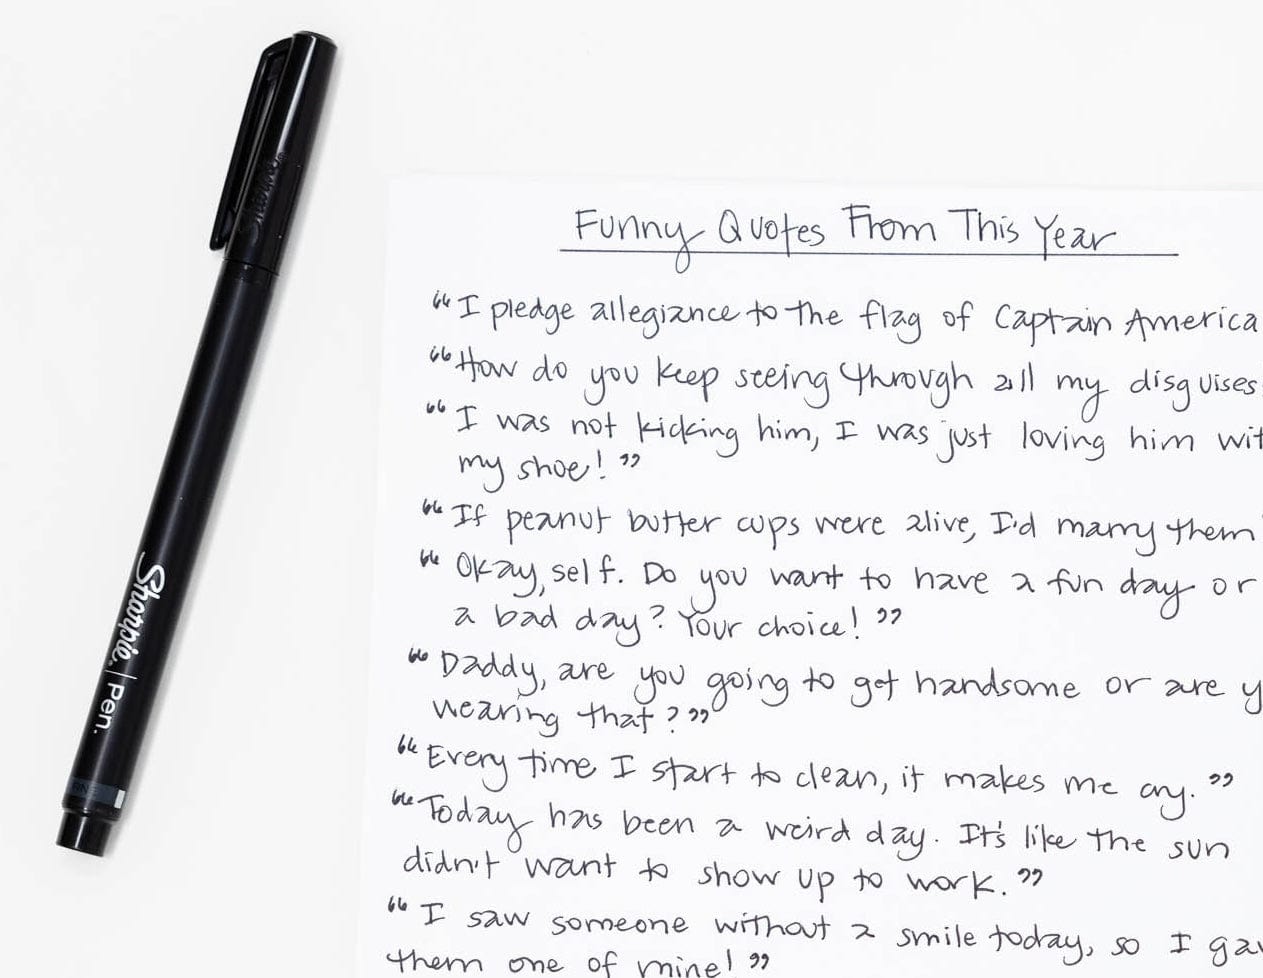 Sharpie. | Pen.
FINE
Funny Quotes From This Year
"I pledge allegiance to the flag of Captain America
"How do you keep seeing through all my disguises
"I was not kicking him, I was just loving him wit
my shoe!"
"If peanut butter cups were alive, I'd marry them
"Okay, self. Do you want to have a fun day or
a bad day? Your choice!"
"Daddy, are you going to get handsome or are y
wearing that?"
"Every time I start to clean, it makes me cry."
"Today has been a weird day. It's like the sun
didn't want to show up to work."
"I saw someone without a smile today, so I ga
them one of mine!"